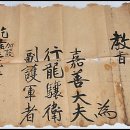 教旨
爲
嘉善大夫
行龍驤衛
副護軍者
乾隆